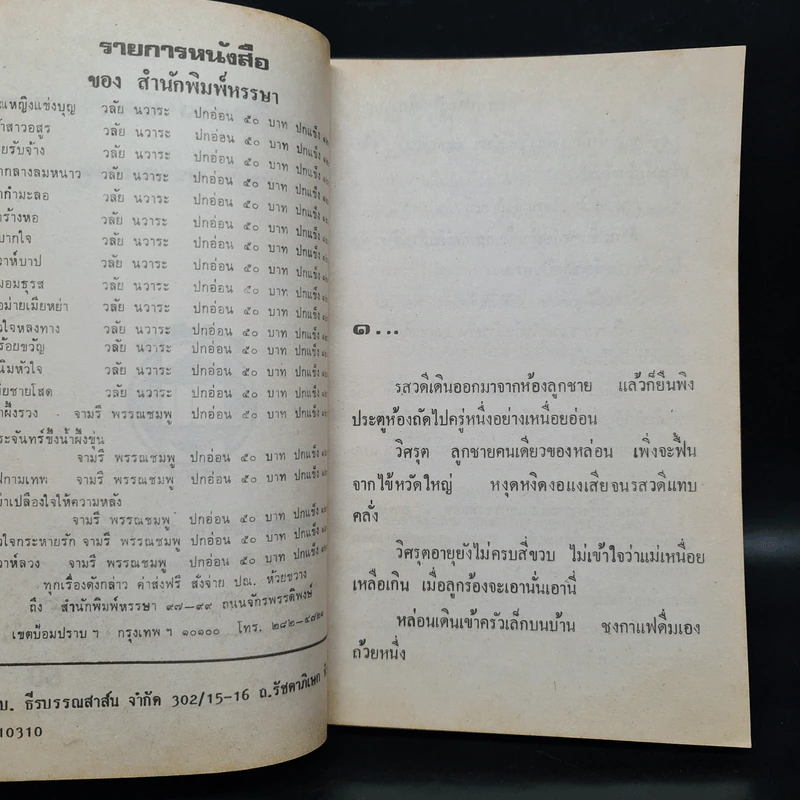 รายการหนังสือ
ของ สำนักพิมพ์หรรษา
ณหญิงแข่งบุญ วลัย นวาระ ปกอ่อน ๕๐ บาท ปกแข็ง
สาวอสูร วลัย นวาระ ปกอ่อน ๕๐ บาท ปกแข็ง
ยรับจ้าง วลัย นวาระ ปกอ่อน ๕๐ บาท ปกแข็ง
กลางลมหนาว วลัย นวาระ ปกอ่อน ๕๐ บาท ปกแข็ง
กำมะลอ วลัย นวาระ ปกอ่อน ๕๐ บาท ปกแข็ง
ร้างหอ วลัย นวาระ ปกอ่อน ๕๐ บาท ปกแข็ง
บากใจ วลัย นวาระ ปกอ่อน ๕๐ บาท ปกแข็ง
วาห์บาป วลัย นวาระ ปกอ่อน ๕๐ บาท ปกแข็ง
มอมธุรส วลัย นวาระ ปกอ่อน ๕๐ บาท ปกแข็ง
อม่ายเมียหย่า วลัย นวาระ ปกอ่อน ๕๐ บาท ปกแข็ง
วใจหลงทาง วลัย นวาระ ปกอ่อน ๕๐ บาท ปกแข็ง
ร้อยขวัญ วลัย นวาระ ปกอ่อน ๕๐ บาท ปกแข็ง
นิมหัวใจ วลัย นวาระ ปกอ่อน ๕๐ บาท ปกแข็ง
ียชายโสด วลัย นวาระ ปกอ่อน ๕๐ บาท ปกแข็ง
ผึ้งรวง จามรี พรรณชมพู ปกอ่อน ๕๐ บาท ปกแข็ง
ระจันทร์ขึ้งน้ำผึ้งขุ่น
จามรี พรรณชมพู ปกอ่อน ๕๐ บาท ปกแข็ง
ฟกามเทพ จามรี พรรณชมพู ปกอ่อน ๕๐ บาท ปกแข็ง
ข้าเปลืองใจให้ความหลัง
จามรี พรรณชมพู ปกอ่อน ๕๐ บาท ปกแข็ง
วใจกระหายรัก จามรี พรรณชมพู ปกอ่อน ๕๐ บาท ปกแข็ง
วาห์ลวง จามรี พรรณชมพู ปกอ่อน ๕๐ บาท ปกแข็ง
ทุกเรื่องดังกล่าว ค่าส่งฟรี สั่งจ่าย ปณ. ห้วยขวาง
ถึง สำนักพิมพ์หรรษา ๙๗-๙๙ ถนนจักรพรรดิพงษ์
เขตป้อมปราบ ฯ กรุงเทพ ฯ ๑๐๑๐๐ โทร.
บ. ธีรบรรณสาส์น จำกัด 302/15-16 ถ.รัชดาภิเษก
10310
๑...
รสวดีเดินออกมาจากห้องลูกชาย แล้วก็ยืนพิง
ประตูห้องถัดไปครู่หนึ่งอย่างเหนื่อยอ่อน
วิศรุต ลูกชายคนเดียวของหล่อน เพิ่งจะฟื้น
จากไข้หวัดใหญ่ หงุดหงิดงอแงเสียจนรสวดีแทบ
คลั่ง
วิศรุตอายุยังไม่ครบสี่ขวบ ไม่เข้าใจว่าแม่เหนื่อย
เหลือเกิน เมื่อลูกร้องจะเอานั่นเอานี่
หล่อนเดินเข้าครัวเล็กบนบ้าน ชงกาแฟดื่มเอง
ถ้วยหนึ่ง